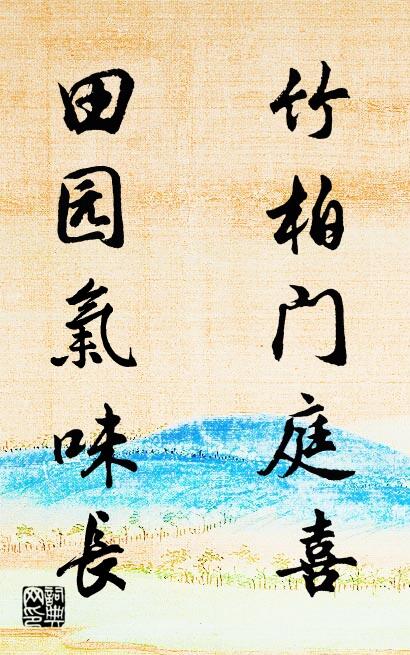 竹柏门庭喜
田园氣味長
詞典
网印